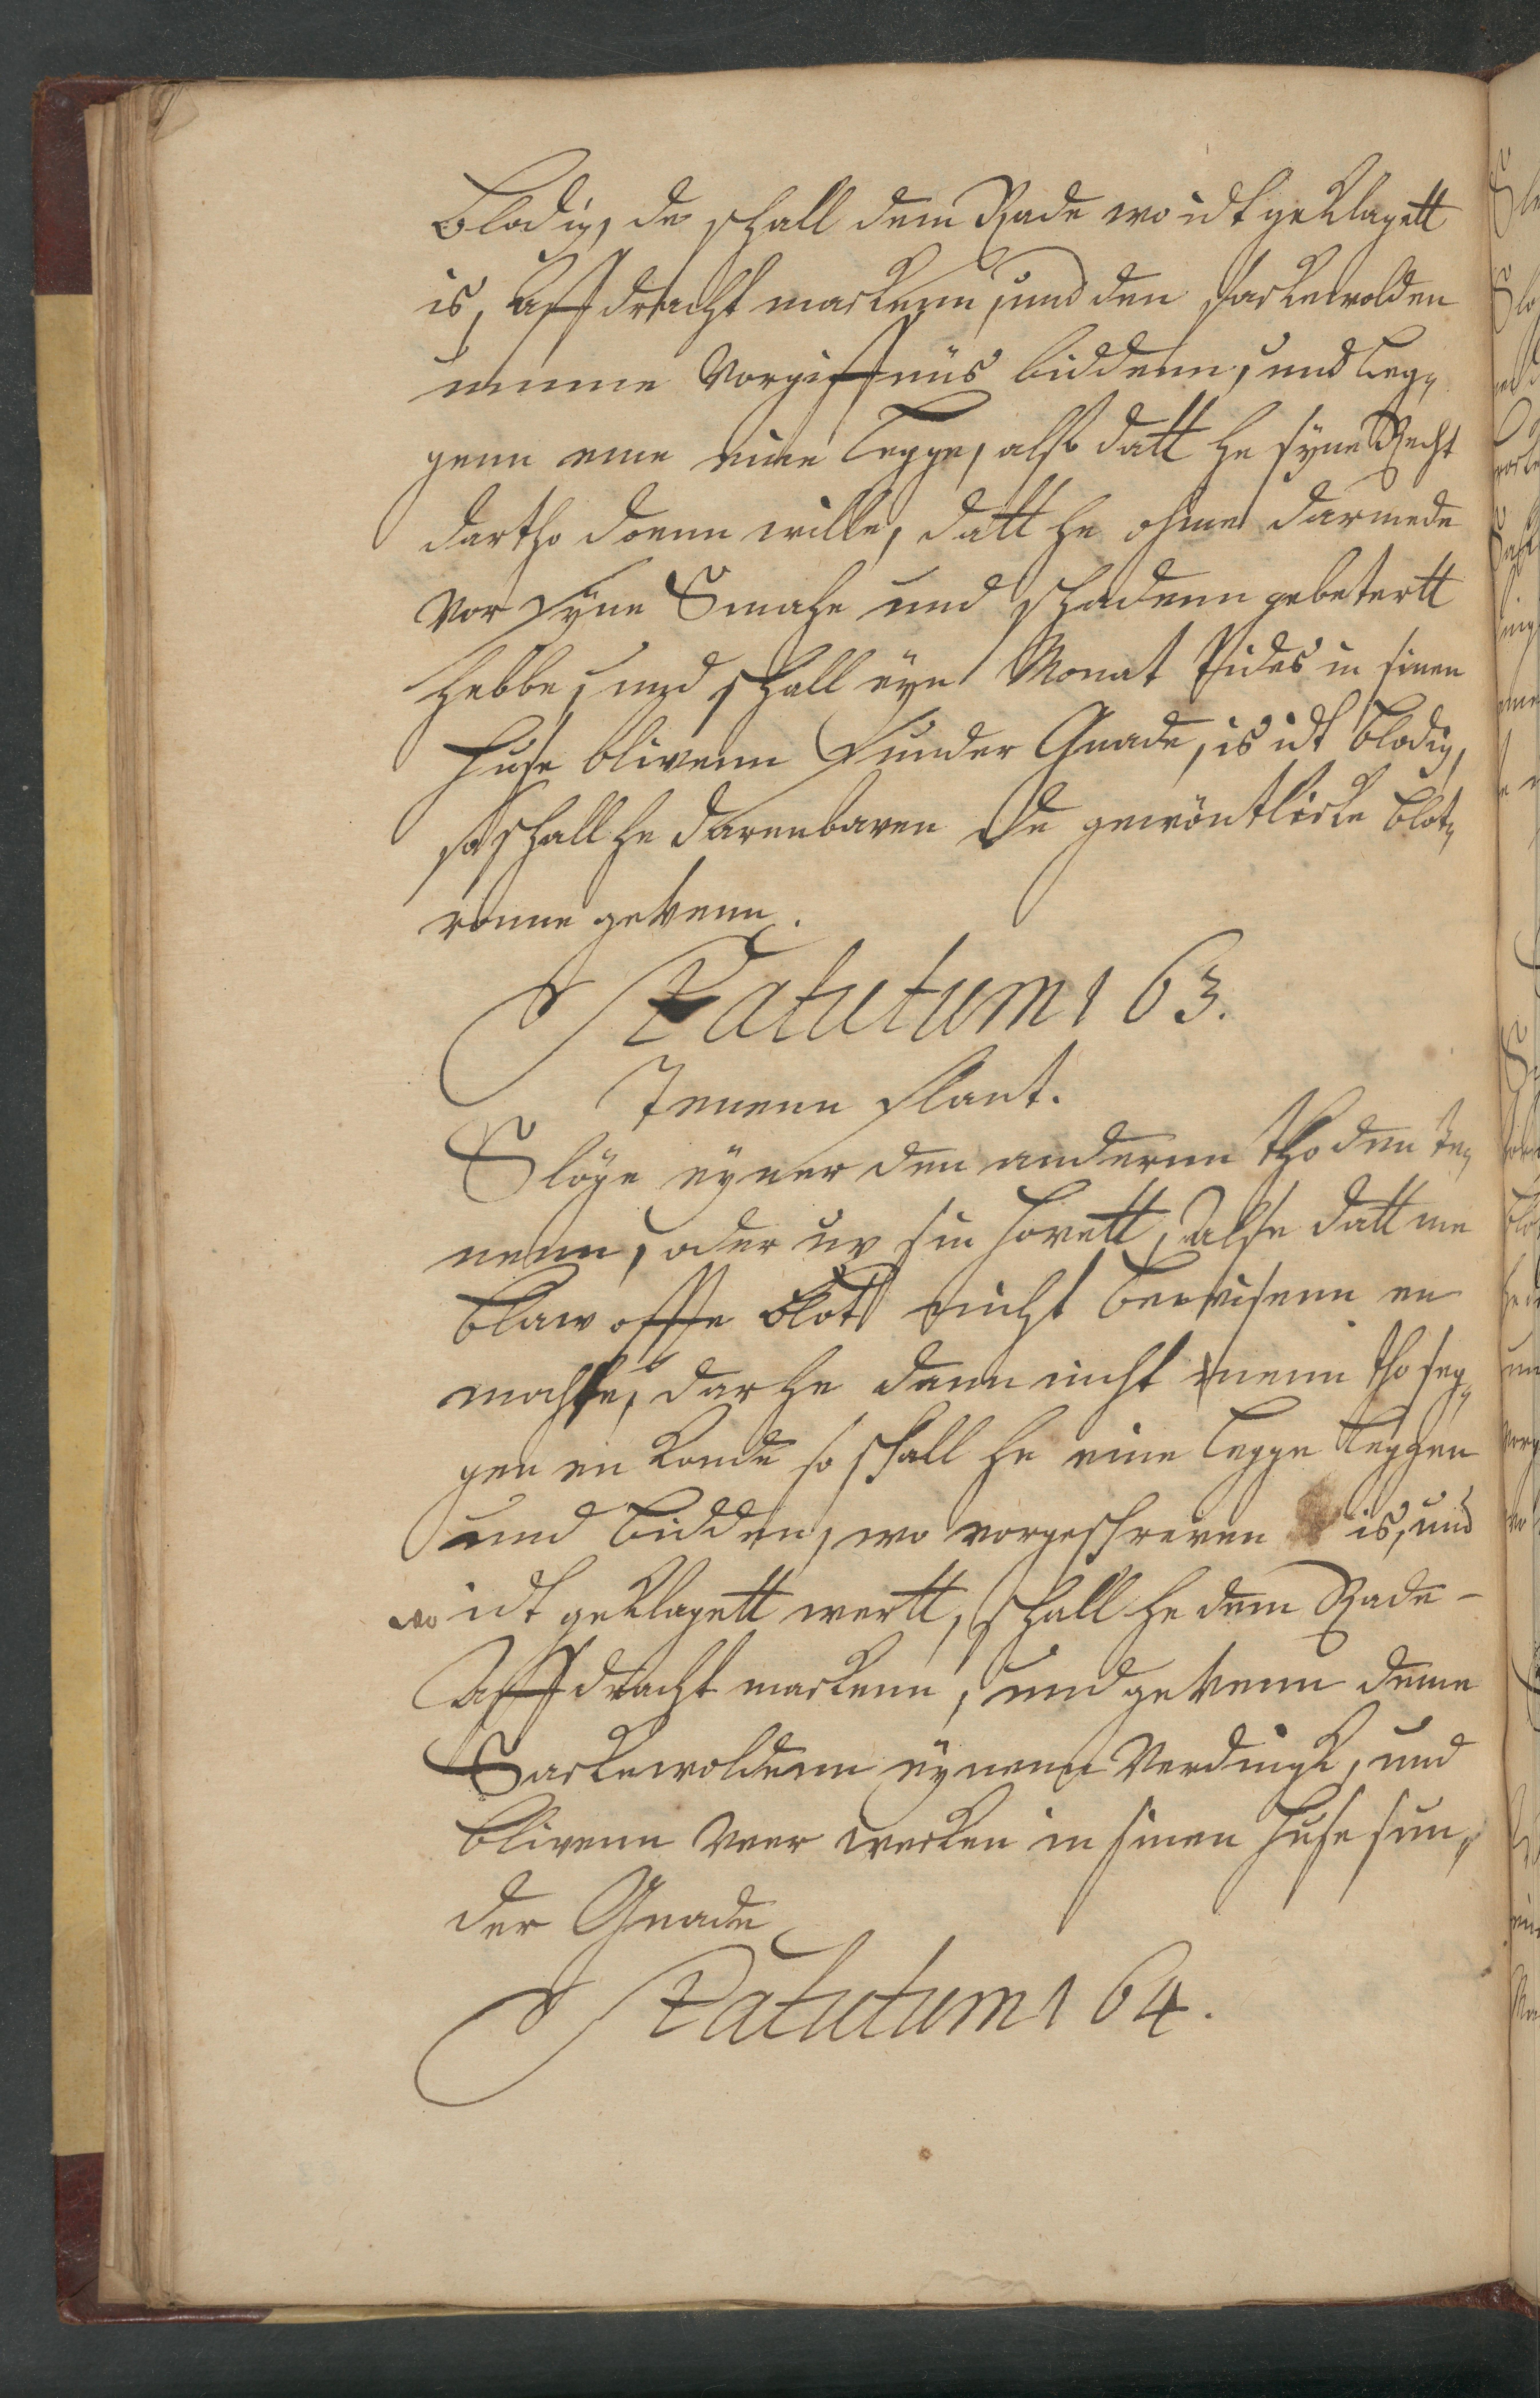 Blodig, de schall dem Rade wo idt geklagett
is, affdracht mackenn, und den sackewolden
umme Vorgiffnüs biddenn, und leg„
genn eme eine Legge, alse datt he syne Recht
dartho doenn wille, datt he ohme darmede
vor syne Smahe und schadenn gebetertt
hebbe, und schall eyn Monat Tides in sinen
huse blivenn sunder Gnade, is idt blodig,
so schall he darenbaven de gewöntlicke blot„
ronne gevenn.
Statutum 163.
Tenenn slant.
Slöge eyner den anderenn tho den te„
nenn, oder up sin hovett, alse datt me
blaw offte blott nicht bewisenn en
mochte, dar he denn nicht nenn tho seg„
gen en konde so schall he eine legge leggen
und bidden, wo vorgeschreven is, und
wo idt geklagett wertt, schall he dem Rade -
Affdracht mackenn, und gevenn deme
Sackewoldenn eynenn Verdingk, und
blivenn veer wecken in sinen huse sun„
der Gnade
Statutum 164.